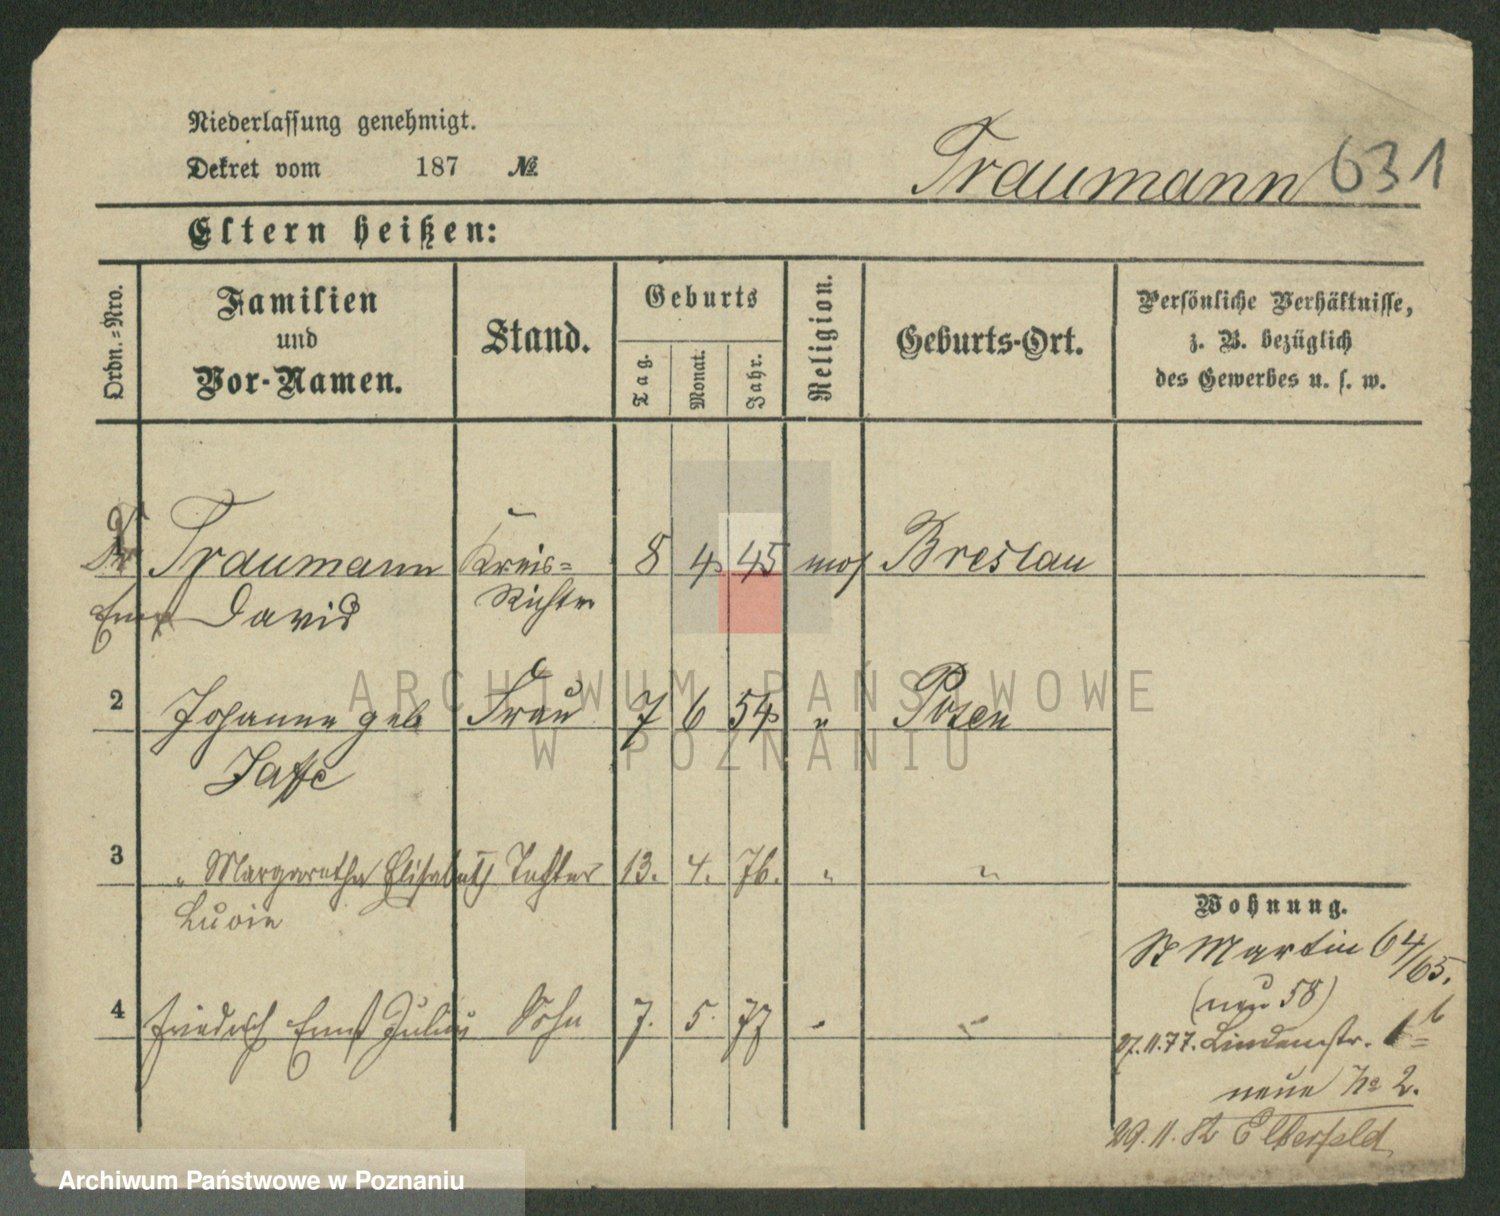 Niederlassung genehmigt.
Dekret vom 187 №
Traumann 631
Eltern heißen:
Ordn.-Nro.
Familien
und
Vor-Namen.
Stand.
Geburts
Tag.
Monat.
Jahr.
Religion.
Geburts-Ort.
Persönliche Verhältnisse,
z. B. bezüglich
des Gewerbes u. s. w.
Dr Traumann Kreis= 8 4 45 mos Breslau
Ernst David Richter
2 Johanna geb Frau 7 6 54 " Posen
Jaffe
3 " Margaretha Elisabeth Tochter 13. 4. 76. " "
Lucie
4 Friedrich Ernst Julius Sohn 7. 5. 77 " "
Wohnung.
St Martin 64/65.
(neu 58)
27.11.77. Lindenstr. 1 b
neue No 2.
29.11.82 Elberfeld
ARCHIWUM PAŃSTWOWE
W POZNANIU
Archiwum Państwowe w Poznaniu